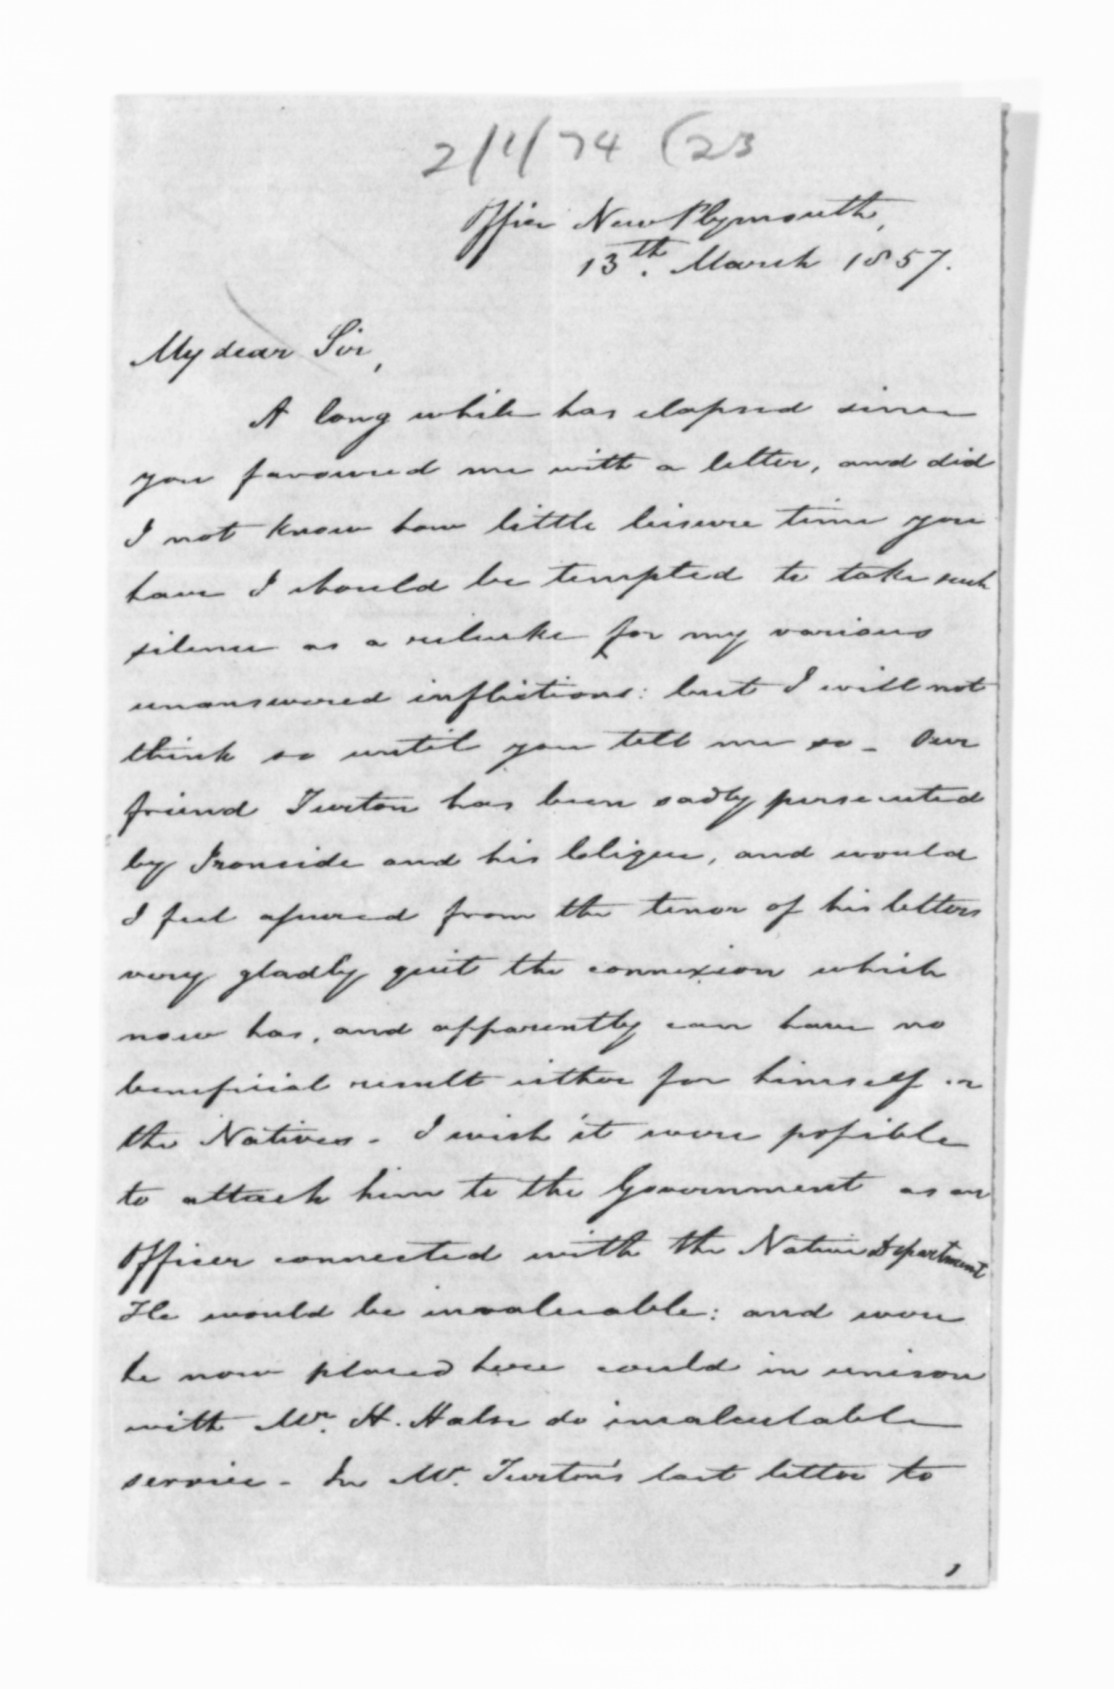 2/1/74 (23
Office New Plymouth,
13th. March 1857.
My dear Sir,
A long while has elapsed since
you favoured me with a letter, and did
I not know how little leisure time you
have I should be tempted to take such
silence as a rebuke for my various
unanswered inflictions: but I will not
think so until you tell me so - Our
friend Turton has been sadly persecuted
by Ironside and his clique, and would
I feel assured from the tenor of his letters
very gladly quit the connexion which
now has, and apparently can have no
beneficial result either for himself or
the Natives - I wish it were possible
to attach him to the Government as an
Officer connected with the Native Department
He would be invaluable: and were
he now placed here could in unison
with Mr. H. Halse do incalculable
service - In Mr. Turton's last letter to